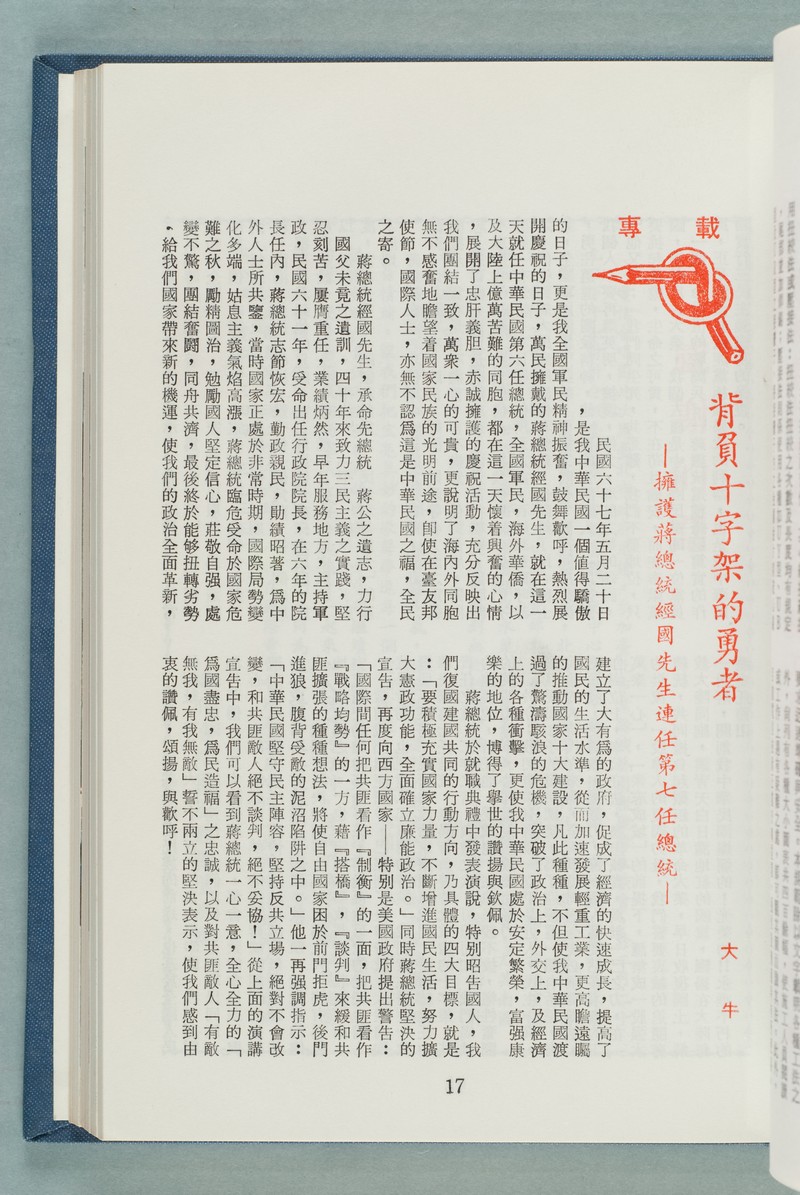 專載
背負十字架的勇者
—擁護蔣總統經國先生連任第七任總統—
大牛
民國六十七年五月二十日
，是我中華民國一個值得驕傲
的日子，更是我全國軍民精神振奮，鼓舞歡呼，熱烈展
開慶祝的日子，萬民擁戴的蔣總統經國先生，就在這一
天就任中華民國第六任總統，全國軍民，海外華僑，以
及大陸上億萬苦難的同胞，都在這一天懷着興奮的心情
，展開了忠肝義胆，赤誠擁護的慶祝活動，充分反映出
我們團結一致，萬衆一心的可貴，更說明了海內外同胞
無不感奮地瞻望着國家民族的光明前途，卽使在臺友邦
使節，國際人士，亦無不認爲這是中華民國之福，全民
之寄。
蔣總統經國先生，承命先總統　蔣公之遺志，力行
國父未竟之遺訓，四十年來致力三民主義之實踐，堅
忍刻苦，屢膺重任，業績炳然，早年服務地方，主持軍
政，民國六十一年，受命出任行政院院長，在六年的院
長任內，蔣總統志節恢宏，勤政親民，勛績昭著，爲中
外人士所共鑒，當時國家正處於非常時期，國際局勢變
化多端，姑息主義氣焰高漲，蔣總統臨危受命於國家危
難之秋，勵精圖治，勉勵國人堅定信心，莊敬自强，處
變不驚，團結奮鬪，同舟共濟，最後終於能够扭轉劣勢
，給我們國家帶來新的機運，使我們的政治全面革新，
建立了大有爲的政府，促成了經濟的快速成長，提高了
國民的生活水準，從而加速發展輕重工業，更高瞻遠矚
的推動國家十大建設，凡此種種，不但使我中華民國渡
過了驚濤駭浪的危機，突破了政治上，外交上，及經濟
上的各種衝擊，更使我中華民國處於安定繁榮，富强康
樂的地位，博得了舉世的讚揚與欽佩。
蔣總統於就職典禮中發表演說，特别昭告國人，我
們復國建國共同的行動方向，乃具體的四大目標，就是
：「要積極充實國家力量，不斷增進國民生活，努力擴
大憲政功能，全面確立廉能政治。」同時蔣總統堅決的
宣告，再度向西方國家——特别是美國政府提出警告：
「國際間任何把共匪看作『制衡』的一面，把共匪看作
『戰略均勢』的一方，藉『搭橋』，『談判』來緩和共
匪擴張的種種想法，將使自由國家困於前門拒虎，後門
進狼，腹背受敵的泥沼陷阱之中。」他一再强調指示：
「中華民國堅守民主陣容，堅持反共立場，絕對不會改
變，和共匪敵人絕不談判，絕不妥協！」從上面的演講
宣告中，我們可以看到蔣總統一心一意，全心全力的「
爲國盡忠，爲民造福」之忠誠，以及對共匪敵人「有敵
無我，有我無敵」誓不兩立的堅決表示，使我們感到由
衷的讚佩，頌揚，與歡呼！
17